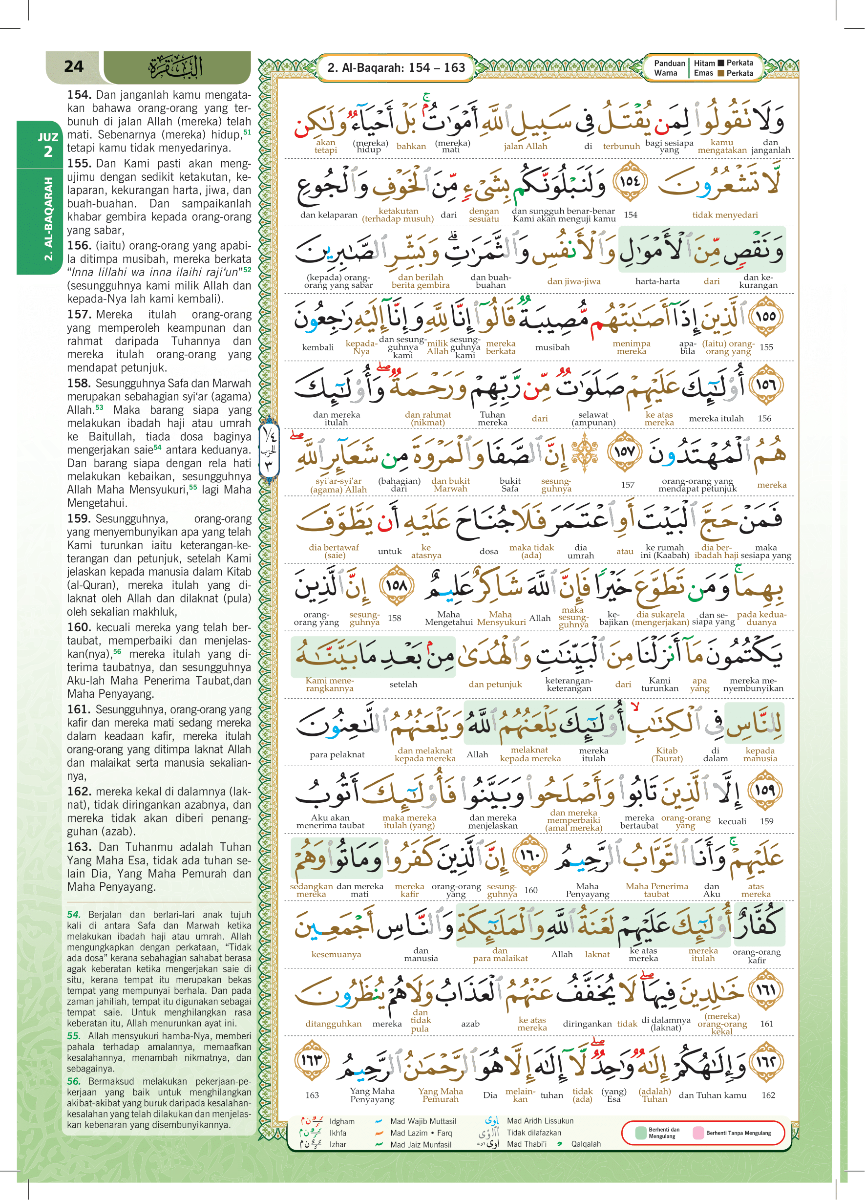 24
البقرة
2. Al-Baqarah: 154 – 163
Panduan Warna
Hitam ■ Perkata
Emas ■ Perkata
JUZ
2
2. AL-BAQARAH
154. Dan janganlah kamu mengata-
kan bahawa orang-orang yang ter-
bunuh di jalan Allah (mereka) telah
mati. Sebenarnya (mereka) hidup,51
tetapi kamu tidak menyedarinya.
155. Dan Kami pasti akan meng-
ujimu dengan sedikit ketakutan, ke-
laparan, kekurangan harta, jiwa, dan
buah-buahan. Dan sampaikanlah
khabar gembira kepada orang-orang
yang sabar,
156. (iaitu) orang-orang yang apabi-
la ditimpa musibah, mereka berkata
“Inna lillahi wa inna ilaihi raji‘un”52
(sesungguhnya kami milik Allah dan
kepada-Nya lah kami kembali).
157. Mereka itulah orang-orang
yang memperoleh keampunan dan
rahmat daripada Tuhannya dan
mereka itulah orang-orang yang
mendapat petunjuk.
158. Sesungguhnya Safa dan Marwah
merupakan sebahagian syi‘ar (agama)
Allah.53 Maka barang siapa yang
melakukan ibadah haji atau umrah
ke Baitullah, tiada dosa baginya
mengerjakan saie54 antara keduanya.
Dan barang siapa dengan rela hati
melakukan kebaikan, sesungguhnya
Allah Maha Mensyukuri,55 lagi Maha
Mengetahui.
159. Sesungguhnya, orang-orang
yang menyembunyikan apa yang telah
Kami turunkan iaitu keterangan-ke-
terangan dan petunjuk, setelah Kami
jelaskan kepada manusia dalam Kitab
(al-Quran), mereka itulah yang di-
laknat oleh Allah dan dilaknat (pula)
oleh sekalian makhluk,
160. kecuali mereka yang telah ber-
taubat, memperbaiki dan menjelas-
kan(nya),56 mereka itulah yang di-
terima taubatnya, dan sesungguhnya
Aku-lah Maha Penerima Taubat,dan
Maha Penyayang.
161. Sesungguhnya, orang-orang yang
kafir dan mereka mati sedang mereka
dalam keadaan kafir, mereka itulah
orang-orang yang ditimpa laknat Allah
dan malaikat serta manusia sekalian-
nya,
162. mereka kekal di dalamnya (lak-
nat), tidak diringankan azabnya, dan
mereka tidak akan diberi penang-
guhan (azab).
163. Dan Tuhanmu adalah Tuhan
Yang Maha Esa, tidak ada tuhan se-
lain Dia, Yang Maha Pemurah dan
Maha Penyayang.
54. Berjalan dan berlari-lari anak tujuh
kali di antara Safa dan Marwah ketika
melakukan ibadah haji atau umrah. Allah
mengungkapkan dengan perkataan, “Tidak
ada dosa” kerana sebahagian sahabat berasa
agak keberatan ketika mengerjakan saie di
situ, kerana tempat itu merupakan bekas
tempat yang mempunyai berhala. Dan pada
zaman jahiliah, tempat itu digunakan sebagai
tempat saie. Untuk menghilangkan rasa
keberatan itu, Allah menurunkan ayat ini.
55. Allah mensyukuri hamba-Nya, memberi
pahala terhadap amalannya, memaafkan
kesalahannya, menambah nikmatnya, dan
sebagainya.
56. Bermaksud melakukan pekerjaan-pe-
kerjaan yang baik untuk menghilangkan
akibat-akibat yang buruk daripada kesalahan-
kesalahan yang telah dilakukan dan menjelas-
kan kebenaran yang disembunyikannya.
وَلَا تَقُولُوا۟ لِمَن يُقْتَلُ فِى سَبِيلِ ٱللَّهِ أَمْوَٰتٌۢ ۚ بَلْ أَحْيَآءٌ وَلَـٰكِن
dan janganlah kamu mengatakan bagi sesiapa yang terbunuh di jalan Allah (mereka) mati bahkan (mereka) hidup akan tetapi
لَّا تَشْعُرُونَ ١٥٤ وَلَنَبْلُوَنَّكُم بِشَىْءٍ مِّنَ ٱلْخَوْفِ وَٱلْجُوعِ
tidak menyedari 154 dan sungguh benar-benar Kami akan menguji kamu dengan sesuatu dari ketakutan (terhadap musuh) dan kelaparan
وَنَقْصٍ مِّنَ ٱلْأَمْوَٰلِ وَٱلْأَنفُسِ وَٱلثَّمَرَٰتِ ۗ وَبَشِّرِ ٱلصَّـٰبِرِينَ
dan ke-kurangan dari harta-harta dan jiwa-jiwa dan buah-buahan dan berilah berita gembira (kepada) orang-orang yang sabar
١٥٥ ٱلَّذِينَ إِذَآ أَصَـٰبَتْهُم مُّصِيبَةٌ قَالُوٓا۟ إِنَّا لِلَّهِ وَإِنَّآ إِلَيْهِ رَٰجِعُونَ
155 (Iaitu) orang-orang yang apa-bila menimpa mereka musibah mereka berkata sesung-guhnya kami milik Allah dan sesung-guhnya kami kepada-Nya kembali
١٥٦ أُو۟لَـٰٓئِكَ عَلَيْهِمْ صَلَوَٰتٌ مِّن رَّبِّهِمْ وَرَحْمَةٌ ۖ وَأُو۟لَـٰٓئِكَ
156 mereka itulah ke atas mereka selawat (ampunan) dari Tuhan mereka dan rahmat (nikmat) dan mereka itulah
هُمُ ٱلْمُهْتَدُونَ ١٥٧ ۞ إِنَّ ٱلصَّفَا وَٱلْمَرْوَةَ مِن شَعَآئِرِ ٱللَّهِ ۖ
mereka orang-orang yang mendapat petunjuk 157 sesung-guhnya bukit Safa dan bukit Marwah (bahagian) dari syi‘ar-syi‘ar (agama) Allah
١/٤
الحزب
٣
فَمَنْ حَجَّ ٱلْبَيْتَ أَوِ ٱعْتَمَرَ فَلَا جُنَاحَ عَلَيْهِ أَن يَطَّوَّفَ
maka sesiapa yang dia ber-ibadah haji ke rumah ini (Kaabah) atau dia umrah maka tidak (ada) dosa ke atasnya untuk dia bertawaf (saie)
بِهِمَا ۚ وَمَن تَطَوَّعَ خَيْرًا فَإِنَّ ٱللَّهَ شَاكِرٌ عَلِيمٌ ١٥٨ إِنَّ ٱلَّذِينَ
pada kedua-duanya dan se-siapa yang dia sukarela (mengerjakan) ke-bajikan maka sesung-guhnya Allah Maha Mensyukuri Maha Mengetahui 158 sesung-guhnya orang-orang yang
يَكْتُمُونَ مَآ أَنزَلْنَا مِنَ ٱلْبَيِّنَـٰتِ وَٱلْهُدَىٰ مِنۢ بَعْدِ مَا بَيَّنَّـٰهُ
mereka me-nyembunyikan apa yang Kami turunkan dari keterangan-keterangan dan petunjuk setelah Kami mene-rangkannya
لِلنَّاسِ فِى ٱلْكِتَـٰبِ ۙ أُو۟لَـٰٓئِكَ يَلْعَنُهُمُ ٱللَّهُ وَيَلْعَنُهُمُ ٱللَّـٰعِنُونَ
kepada manusia di dalam Kitab (Taurat) mereka itulah melaknat kepada mereka Allah dan melaknat kepada mereka para pelaknat
١٥٩ إِلَّا ٱلَّذِينَ تَابُوا۟ وَأَصْلَحُوا۟ وَبَيَّنُوا۟ فَأُو۟لَـٰٓئِكَ أَتُوبُ
159 kecuali orang-orang yang mereka bertaubat dan mereka memperbaiki (amal mereka) dan mereka menjelaskan maka mereka itulah (yang) Aku akan menerima taubat
عَلَيْهِمْ ۚ وَأَنَا ٱلتَّوَّابُ ٱلرَّحِيمُ ١٦٠ إِنَّ ٱلَّذِينَ كَفَرُوا۟ وَمَاتُوا۟ وَهُمْ
atas mereka dan Aku Maha Penerima taubat Maha Penyayang 160 sesung-guhnya orang-orang yang mereka kafir dan mereka mati sedangkan mereka
كُفَّارٌ أُو۟لَـٰٓئِكَ عَلَيْهِمْ لَعْنَةُ ٱللَّهِ وَٱلْمَلَـٰٓئِكَةِ وَٱلنَّاسِ أَجْمَعِينَ
orang-orang kafir mereka itulah ke atas mereka laknat Allah dan para malaikat dan manusia kesemuanya
١٦١ خَـٰلِدِينَ فِيهَا ۖ لَا يُخَفَّفُ عَنْهُمُ ٱلْعَذَابُ وَلَا هُمْ يُنظَرُونَ
161 (mereka) orang-orang kekal di dalamnya (laknat) tidak diringankan ke atas mereka azab dan tidak pula mereka ditangguhkan
١٦٢ وَإِلَـٰهُكُمْ إِلَـٰهٌ وَٰحِدٌ ۖ لَّآ إِلَـٰهَ إِلَّا هُوَ ٱلرَّحْمَـٰنُ ٱلرَّحِيمُ ١٦٣
162 dan Tuhan kamu (adalah) Tuhan (yang) Esa tidak (ada) tuhan melain-kan Dia Yang Maha Pemurah Yang Maha Penyayang 163
Idgham
Ikhfa
Izhar
Mad Wajib Muttasil
Mad Lazim • Farq
Mad Jaiz Munfasil
Mad Aridh Lissukun
Tidak dilafazkan
Mad Thabi‘i
Qalqalah
Berhenti dan Mengulang
Berhenti Tanpa Mengulang